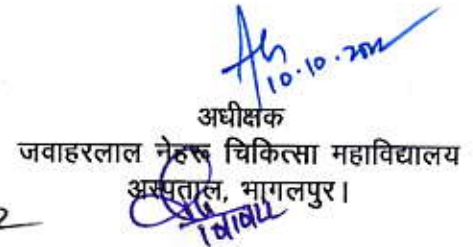 10.10.2022
अधीक्षक
जवाहरलाल नेहरू चिकित्सा महाविद्यालय
अस्पताल, भागलपुर।